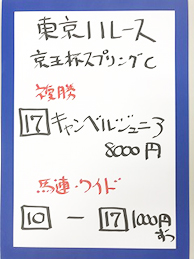 東京11レース
京王杯スプリングC
複勝
17 キャンベルジュニア
8000円
馬連・ワイド
10 — 17 1000円
ずつ